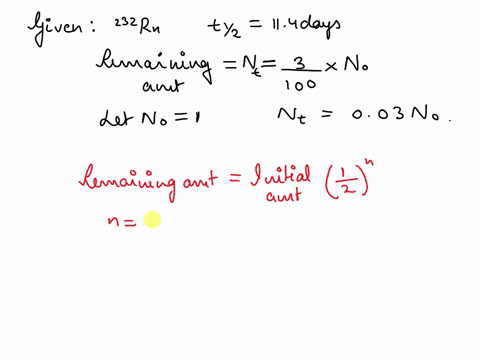 Given: ²³²Rn t½ = 11.4 days
Remaining amt = Nt = 3/100 × N₀
Let N₀ = 1 Nt = 0.03 N₀.
Remaining amt = Initial amt (1/2)ⁿ
n =